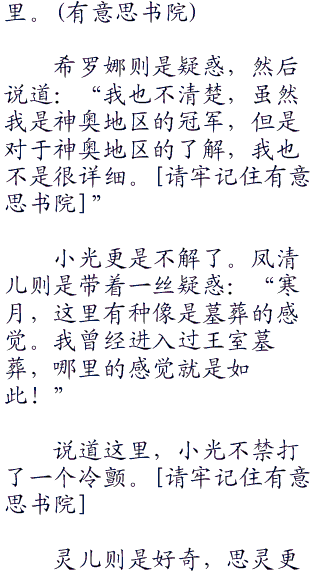 里。(有意思书院)
希罗娜则是疑惑，然后
说道：“我也不清楚，虽然
我是神奥地区的冠军，但是
对于神奥地区的了解，我也
不是很详细。[请牢记住有意
思书院]”
小光更是不解了。凤清
儿则是带着一丝疑惑：“寒
月，这里有种像是墓葬的感
觉。我曾经进入过王室墓
葬，哪里的感觉就是如
此！”
说道这里，小光不禁打
了一个冷颤。[请牢记住有意
思书院]
灵儿则是好奇，思灵更